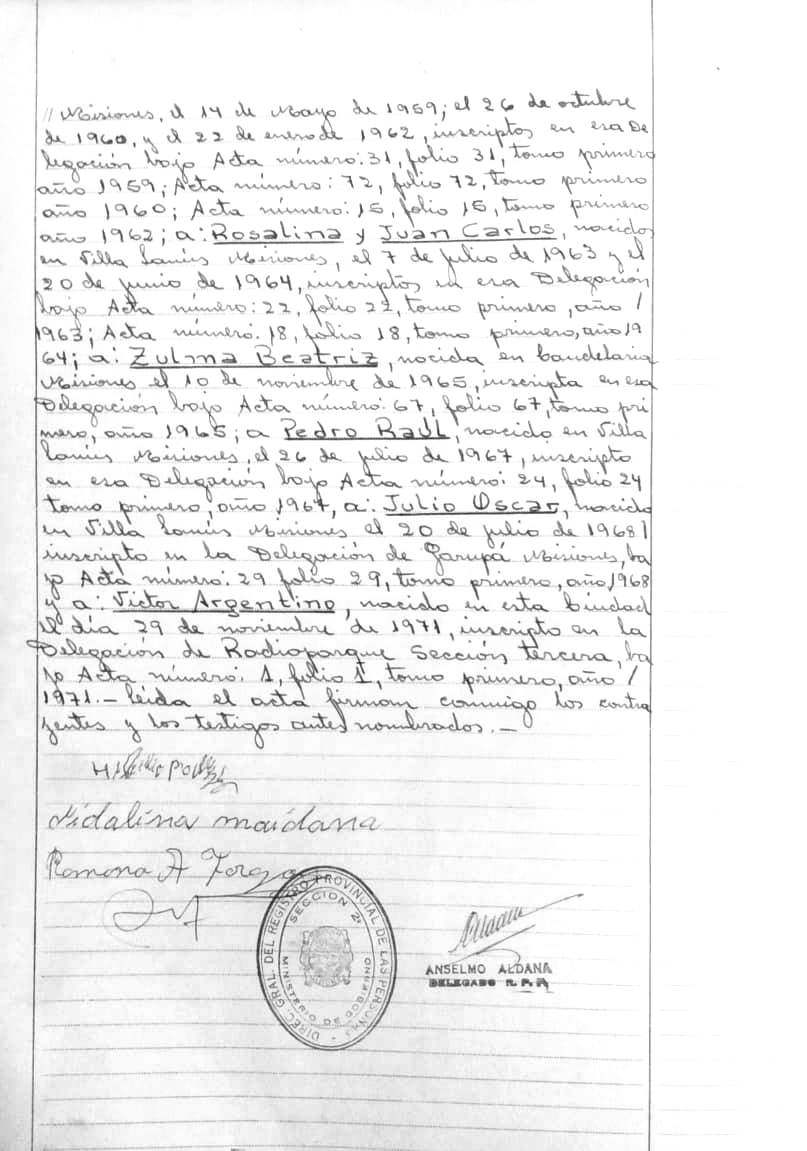 // Misiones, el 14 de Mayo de 1959; el 26 de octubre
de 1960, y el 22 de enero de 1962, inscriptos en esa De
legación bajo Acta número: 31, folio 31, tomo primero
año 1959; Acta número: 72, folio 72, tomo primero
año 1960; Acta número: 15, folio 15, tomo primero
año 1962; a: Rosalina y Juan Carlos, nacidos
en Villa Lanús Misiones, el 7 de julio de 1963 y el
20 de junio de 1964, inscriptos en esa Delegación
bajo Acta número: 22, folio 22, tomo primero, año /
1963; Acta número: 18, folio 18, tomo primero, año 19
64; a: Zulma Beatriz, nacida en Candelaria
Misiones el 10 de noviembre de 1965, inscripta en esa
Delegación bajo Acta número: 67, folio 67, tomo pri
mero, año 1965; a Pedro Raúl, nacido en Villa
Lanús Misiones, el 26 de julio de 1967, inscripto
en esa Delegación bajo Acta número: 24, folio 24
tomo primero, año 1967, a: Julio Oscar, nacido
en Villa Lanús Misiones el 20 de julio de 1968/
inscripto en la Delegación de Garupá Misiones, ba
jo Acta número: 29 folio 29, tomo primero, año 1968
y a: Victor Argentino, nacido en esta Ciudad
el día 29 de noviembre de 1971, inscripto en la
Delegación de Radioparque Sección tercera, ba
jo Acta número: 1, folio 1, tomo primero, año /
1971.- Leída el acta firman conmigo los contra
yentes y los testigos antes nombrados.-
Fidalina maidana
Ramona A
DIREC. GRAL. DEL REGISTRO PROVINCIAL DE LAS PERSONAS
SECCION 2ª
MINISTERIO DE GOBIERNO
ANSELMO ALDANA
DELEGADO R. P. P.